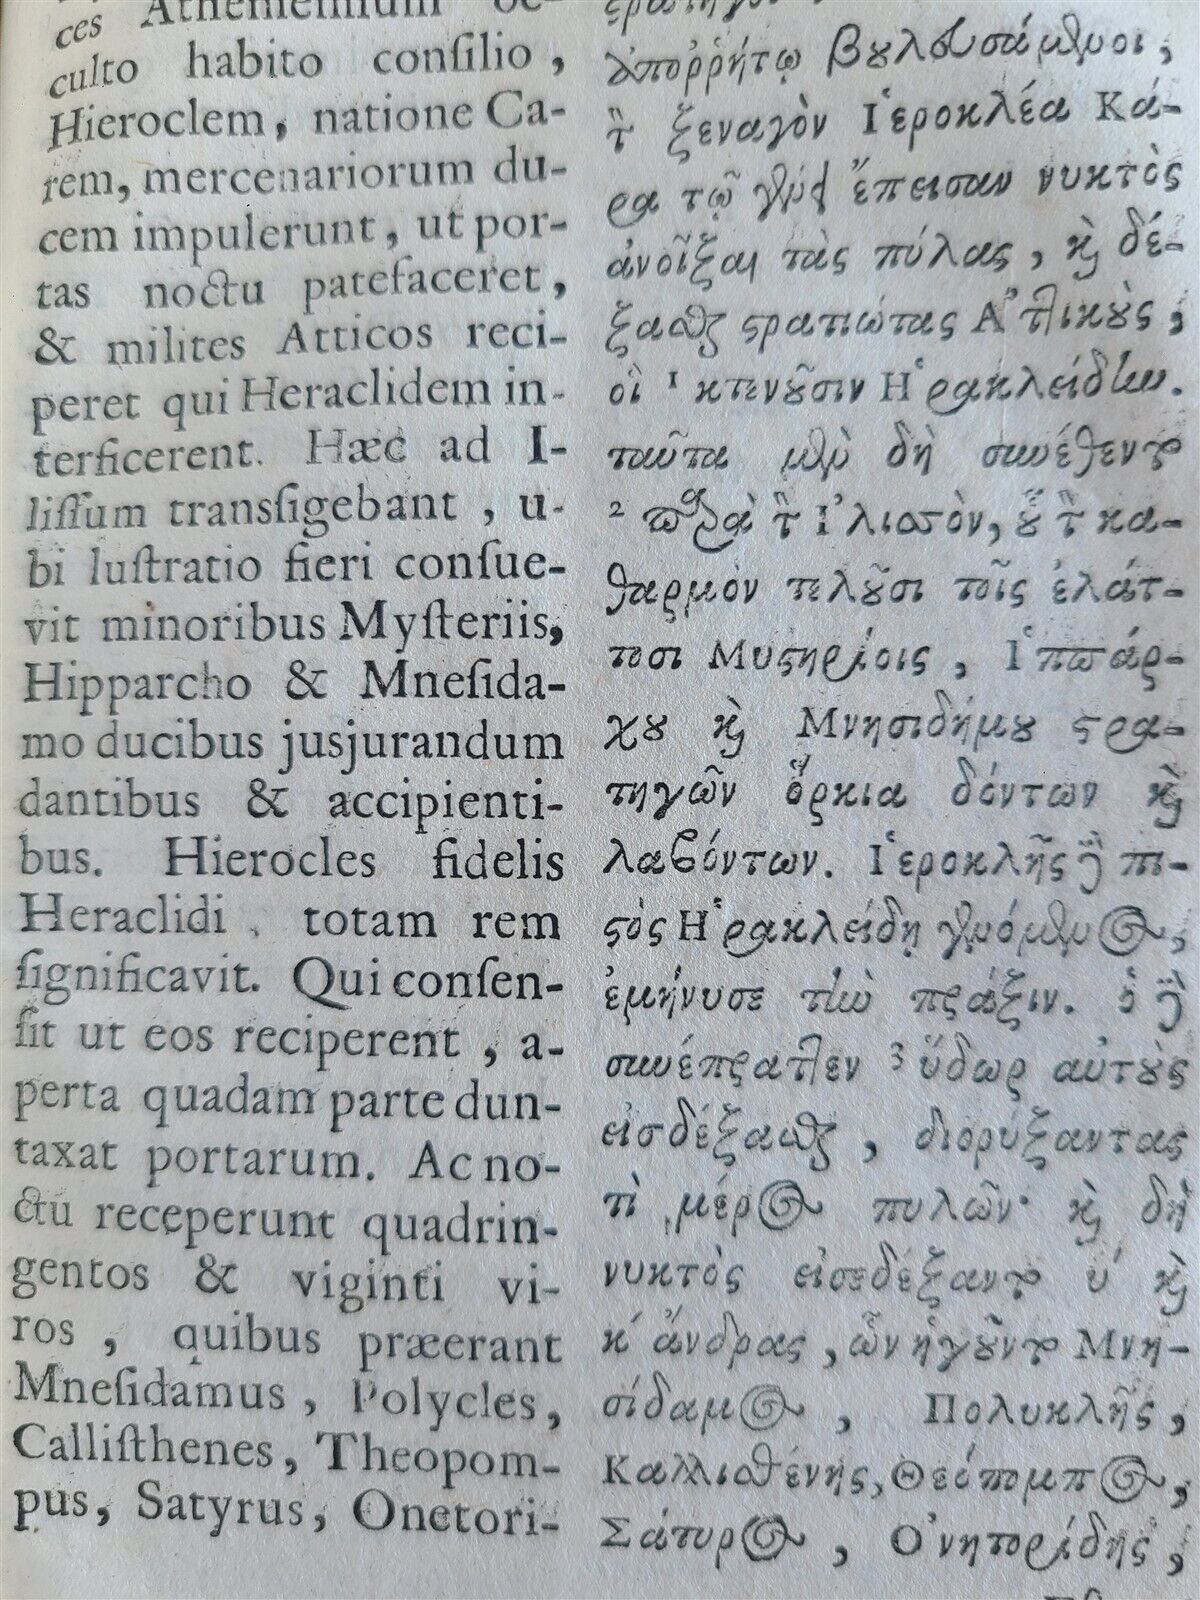 ces Atheniensium oc-
culto habito conſilio,
Hieroclem, natione Ca-
rem, mercenariorum du-
cem impulerunt, ut por-
tas noctu patefaceret,
& milites Atticos reci-
peret qui Heraclidem in-
terficerent. Hæc ad I-
liſſum transſigebant, u-
bi luſtratio fieri conſue-
vit minoribus Myſteriis,
Hipparcho & Mneſida-
mo ducibus jusjurandum
dantibus & accipienti-
bus. Hierocles fidelis
Heraclidi, totam rem
ſignificavit. Qui conſen-
ſit ut eos reciperent, a-
perta quadam parte dun-
taxat portarum. Ac no-
ctu receperunt quadrin-
gentos & viginti vi-
ros, quibus præerant
Mneſidamus, Polycles,
Calliſthenes, Theopom-
pus, Satyrus, Onetori-
ἀποῤῥήτῳ βουλευσάμενοι,
τὸν ξεναγὸν Ἱεροκλέα Κά-
ρα τῷ γένει ἔπεισαν νυκτὸς
ἀνοῖξαι τὰς πύλας, καὶ δέ-
ξασθαι στρατιώτας Ἀττικοὺς,
οἳ 1 κτενοῦσιν Ἡρακλείδην.
ταῦτα μὲν δὴ συνέθεντο
2 παρὰ τὸν Ἰλισσὸν, οὗ τὸν κα-
θαρμὸν τελοῦσι τοῖς ἐλάτ-
τοσι Μυστηρίοις, Ἱππάρ-
χου καὶ Μνησιδήμου στρα-
τηγῶν ὅρκια δόντων καὶ
λαβόντων. Ἱεροκλῆς δὲ πι-
στὸς Ἡρακλείδῃ γενόμενος,
ἐμήνυσε τὴν πρᾶξιν. ὁ δὲ
συνέπραττεν 3 ὕδωρ αὐτοὺς
εἰσδέξασθαι, διορύξαντας
τὶ μέρος πυλῶν· καὶ δὴ
νυκτὸς εἰσεδέξαντο υ´ καὶ
κ´ ἄνδρας, ὧν ἡγοῦντο Μνη-
σίδαμος, Πολυκλῆς,
Καλλισθένης, Θεόπομπος,
Σάτυρος, Ὀνητορίδης,